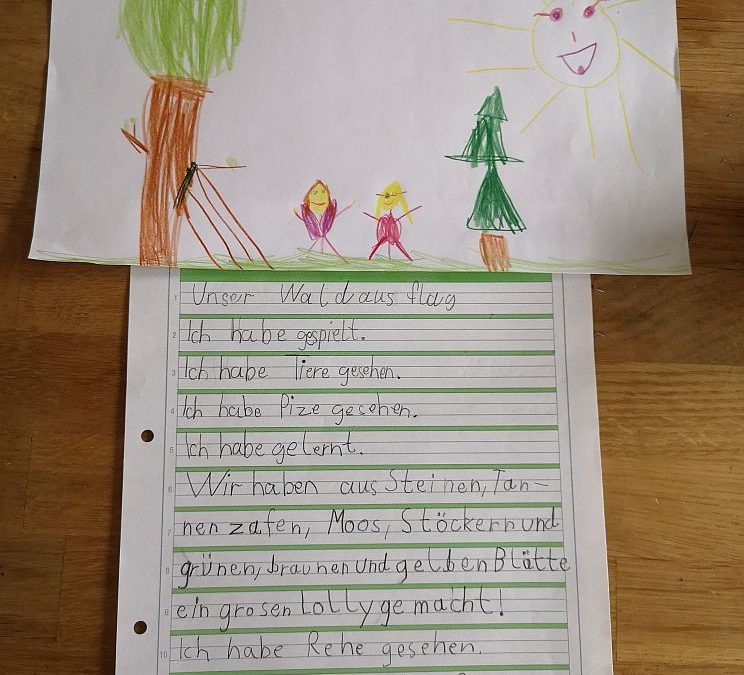 Unser Wald aus flag
Ich habe gespielt.
Ich habe Tiere gesehen.
Ich habe Pize gesehen.
Ich habe gelernt.
Wir haben aus Steinen, Tan-
nen zafen, Moos, Stöckern und
grünen, braunen und gelben Blätte
ein grosen Lolly gemacht!
Ich habe Rehe gesehen.